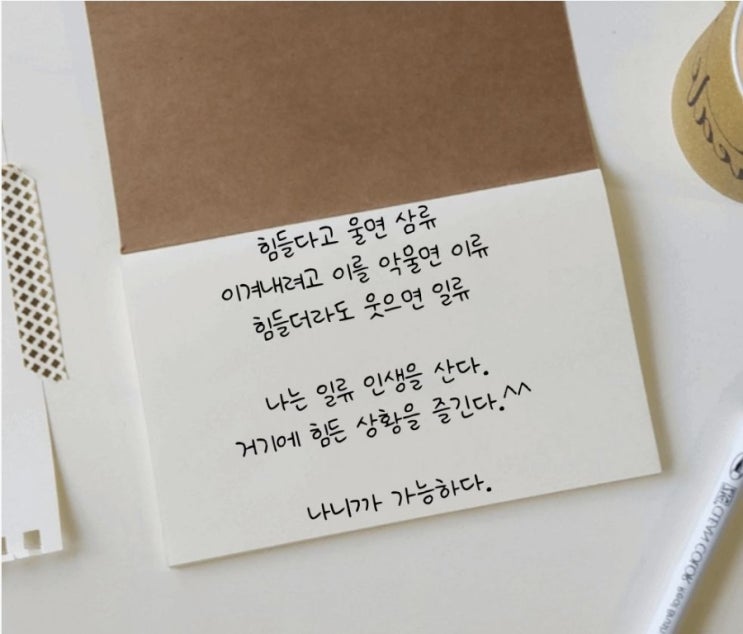 힘들다고 울면 삼류
이겨내려고 이를 악울면 이류
힘들더라도 웃으면 일류
나는 일류 인생을 산다.
거기에 힘든 상황을 즐긴다.^^
나니까 가능하다.